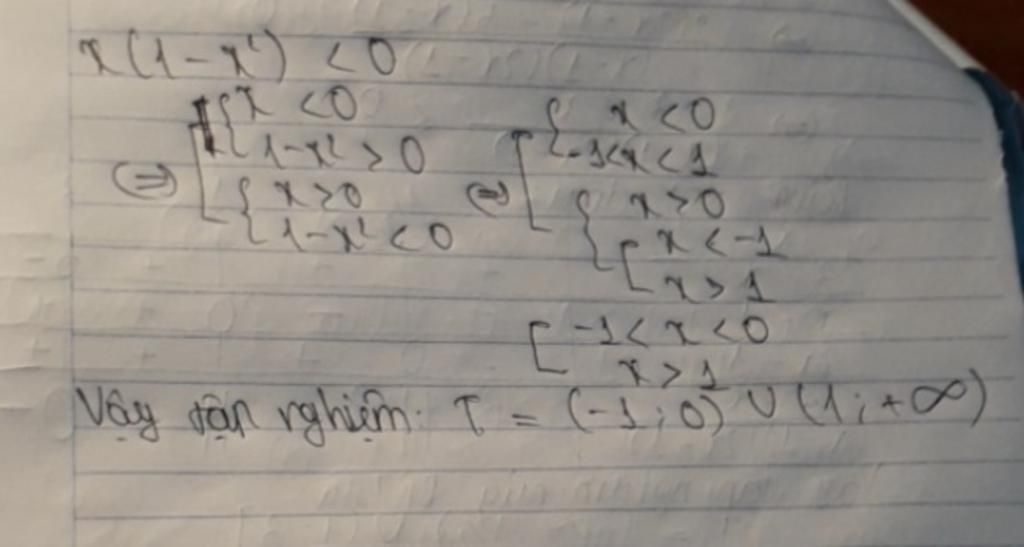 x(1-x²) <0
⇔ [ { x <0 ; 1-x² >0 ; { x>0 ; 1-x² <0
⇔ [ { x <0 ; -1<x<1 ; { x>0 ; [ x <-1 ; x>1
[ -1< x <0
x>1
Vậy tập nghiệm: T = (-1;0) ∪ (1;+∞)